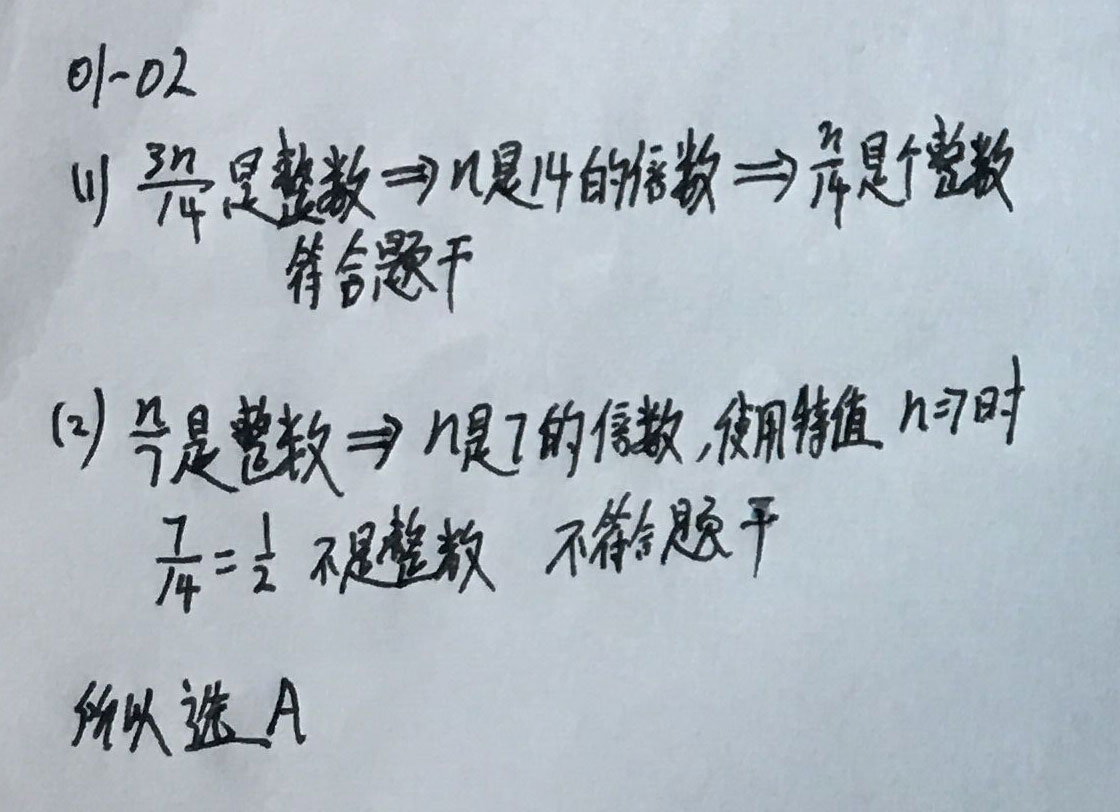 01-02
(1) 3n/14 是整数 ⇒ n是14的倍数 ⇒ n/14 是个整数
符合题干
(2) n/7 是整数 ⇒ n是7的倍数,使用特值 n=7时
7/14 = 1/2 不是整数 不符合题干
所以选 A